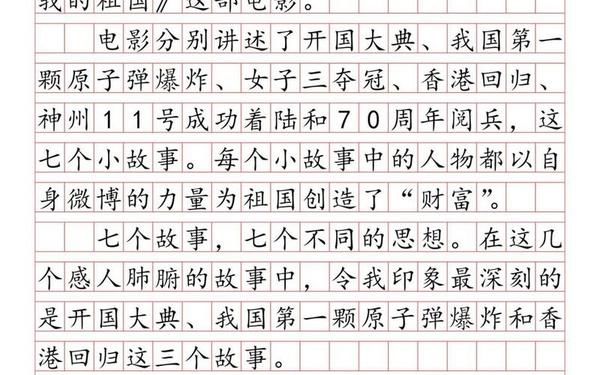 我的祖国》这部电影。
电影分别讲述了开国大典、我国第一
颗原子弹爆炸、女子三夺冠、香港回归、
神州11号成功着陆和70周年阅兵，这
七个小故事。每个小故事中的人物都以自
身微博的力量为祖国创造了“财富”。
七个故事，七个不同的思想。在这几
个感人肺腑的故事中，令我印象最深刻的
是开国大典、我国第一颗原子弹爆炸和香
港回归这三个故事。